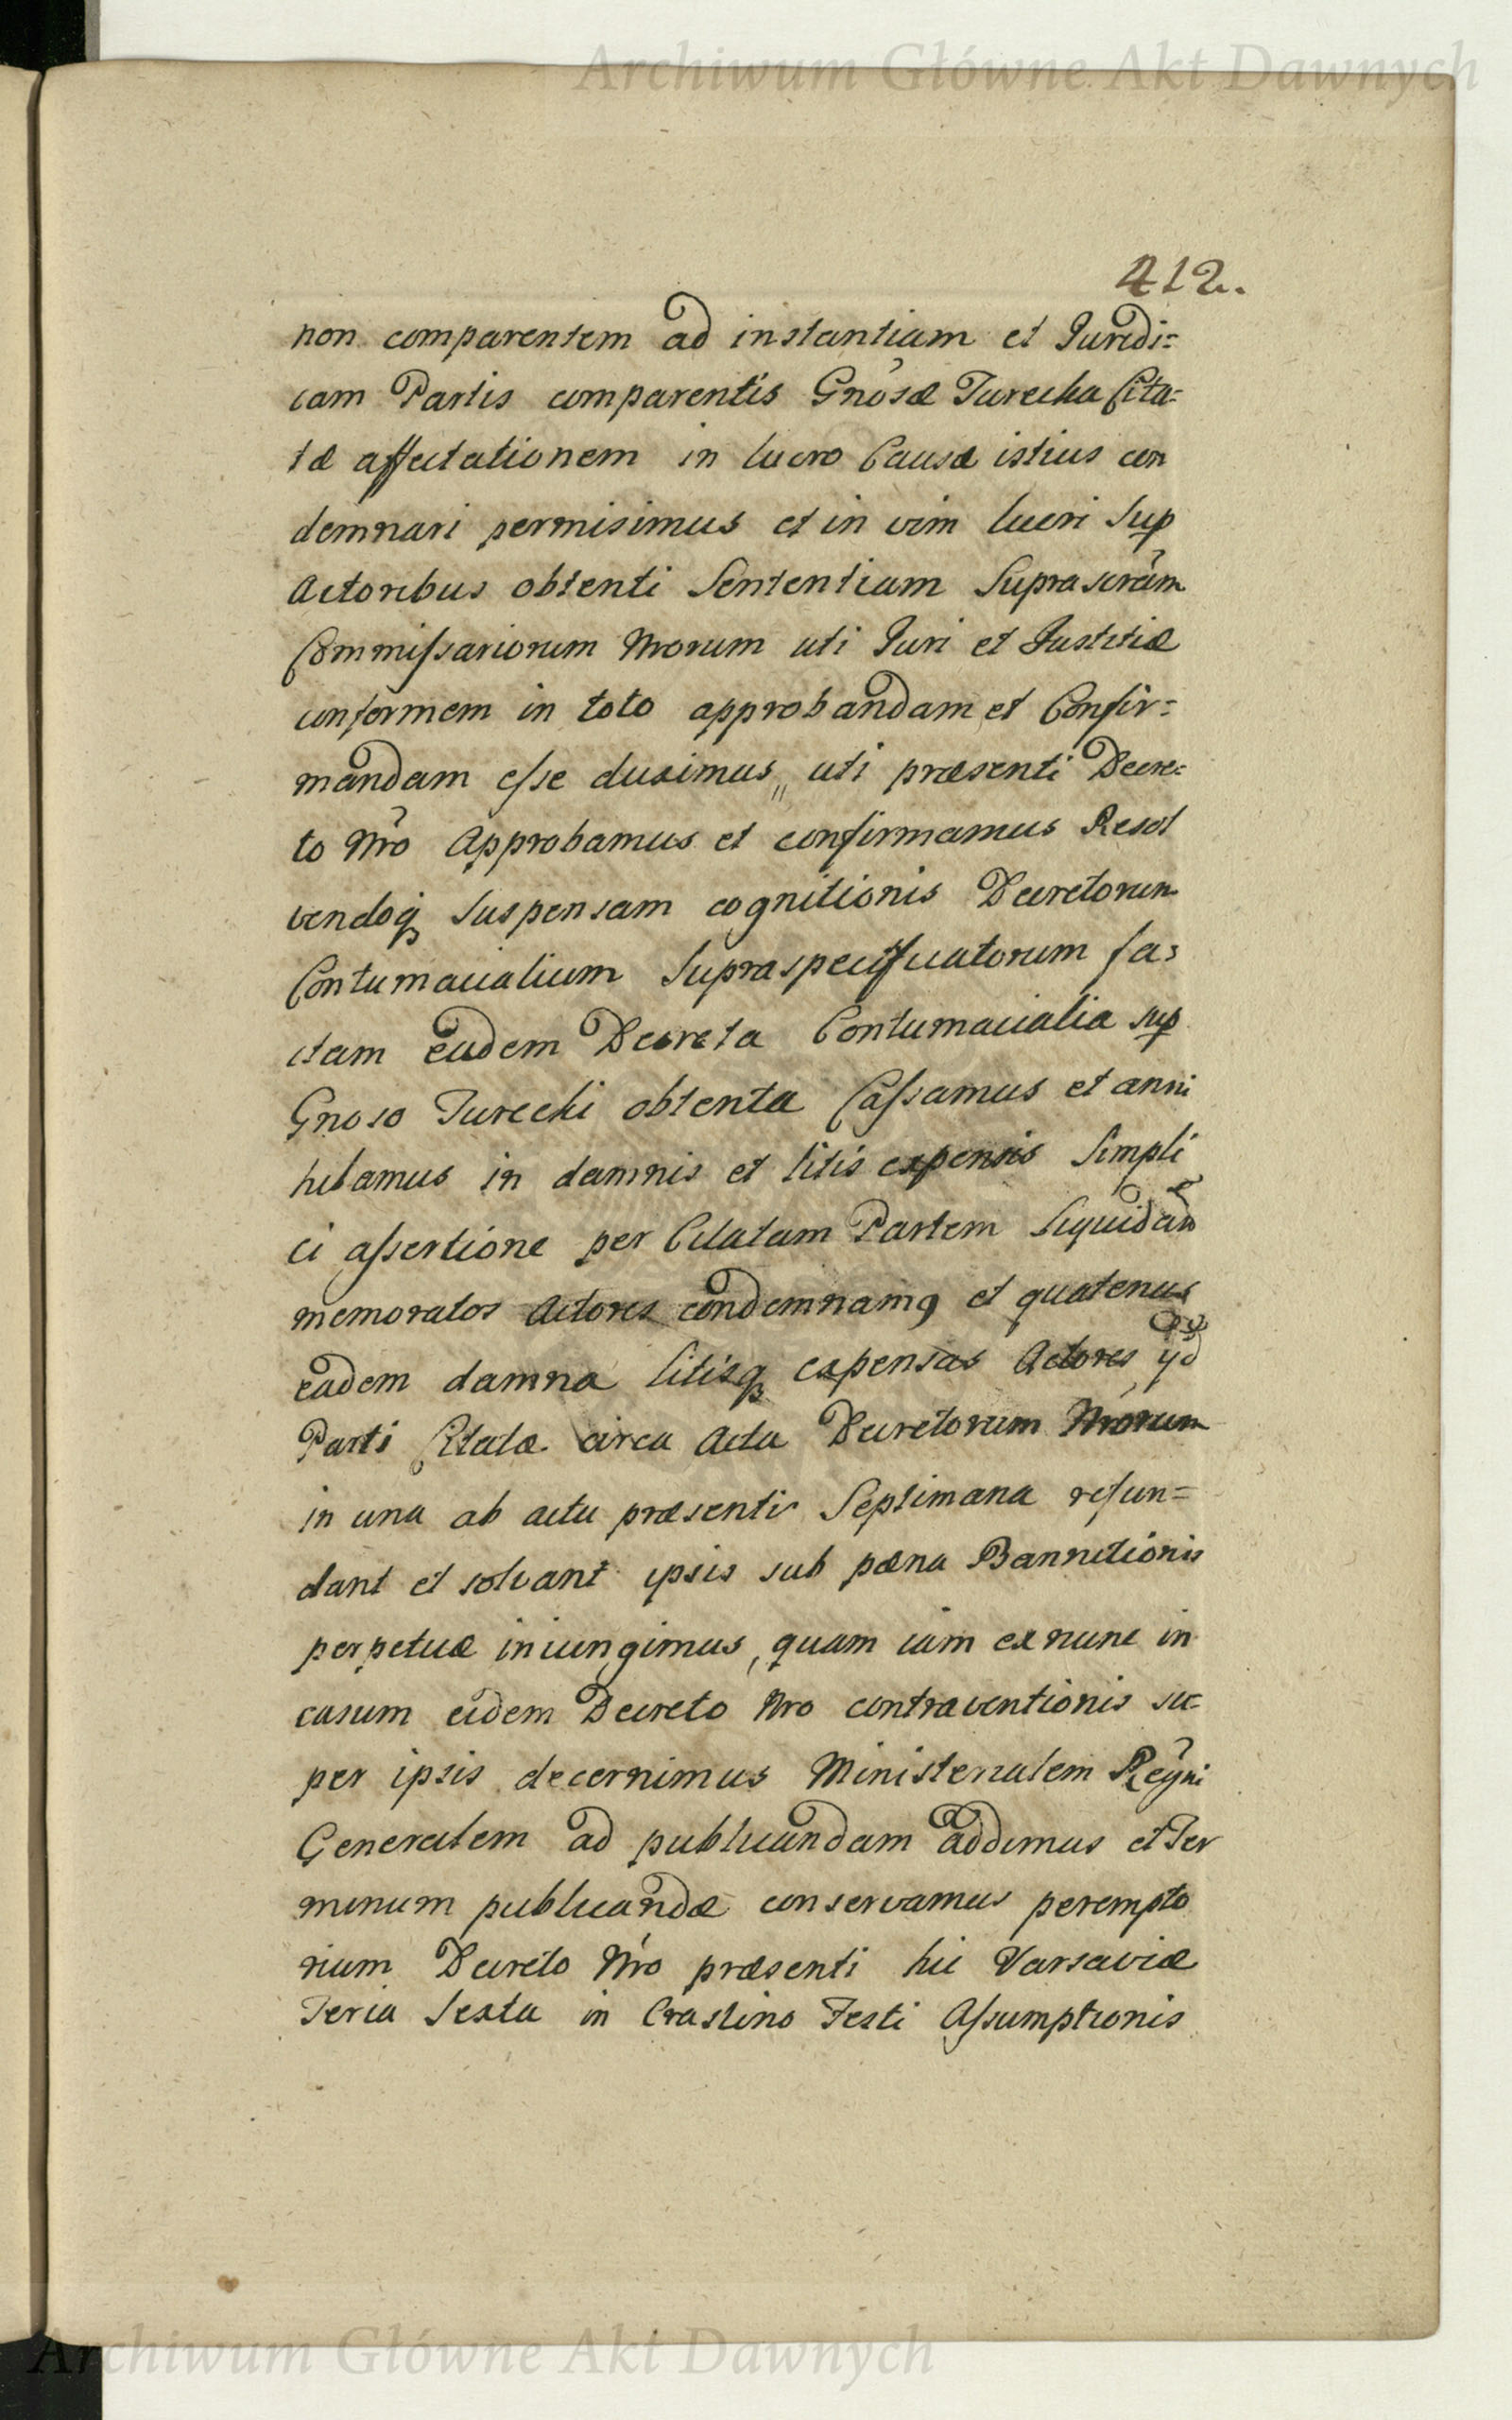 Archiwum Główne Akt Dawnych
412.
non comparentem ad instantiam et Juridi=
cam Partis comparentis Gnosæ Turecka Cita=
tæ affectationem in lucro Causæ istius con
demnari permisimus et in vim lucri sup
Actoribus obtenti Sententiam Suprascram
Commissariorum Nrorum uti Juri et Justitiæ
conformem in toto approbandam et Confir=
mandam esse duximus, uti præsenti Decre=
to Nro Approbamus et confirmamus Resol
vendoq suspensam cognitionis Decretorum
Contumacialium Supraspecificatorum fa=
ctam eadem Decreta Contumacialia sup
Gnoso Turecki obtenta Cassamus et anni
hilamus in damnis et litis expensis Simpli
ci assertione per Citatam Partem liquidan
memoratos Actores condemnamq et quatenus
eadem damna litisq expensas Actores yd
Parti Citatæ circa Acta Decretorum Nrorum
in una ab actu præsenti Septimana refun=
dant et solvant ipsis sub pæna Bannitionis
perpetuæ iniungimus, quam iam ex nunc in
casum eidem Decreto Nro contraventionis su=
per ipsis decernimus Ministerialem Regni
Generalem ad publicandam addimus et Ter
minum publicandæ conservamus perempto
rium Decreto Nro præsenti hic Varsaviæ
Feria Sexta in Crastino Festi Assumptionis
Archiwum Główne Akt Dawnych